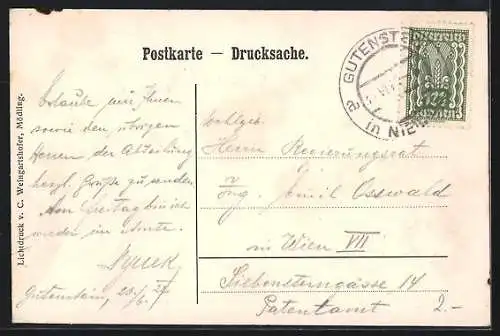 Postkarte — Drucksache.
Erlaube mir Ihnen
sowie den übrigen
Herren der Abteilung
herzl. Grüße zu senden
Am Freitag bin ich
wieder im Amte.
Gutenstein, 25/6. 24
Lichtdruck v. C. Weingartshofer, Mödling.
GUTENST
in NIE
12½
Wohlgeb.
Herrn Regierungsrat
Ing. Emil Osswald
in Wien VII
Siebensterngasse 14
Patentamt 2.-